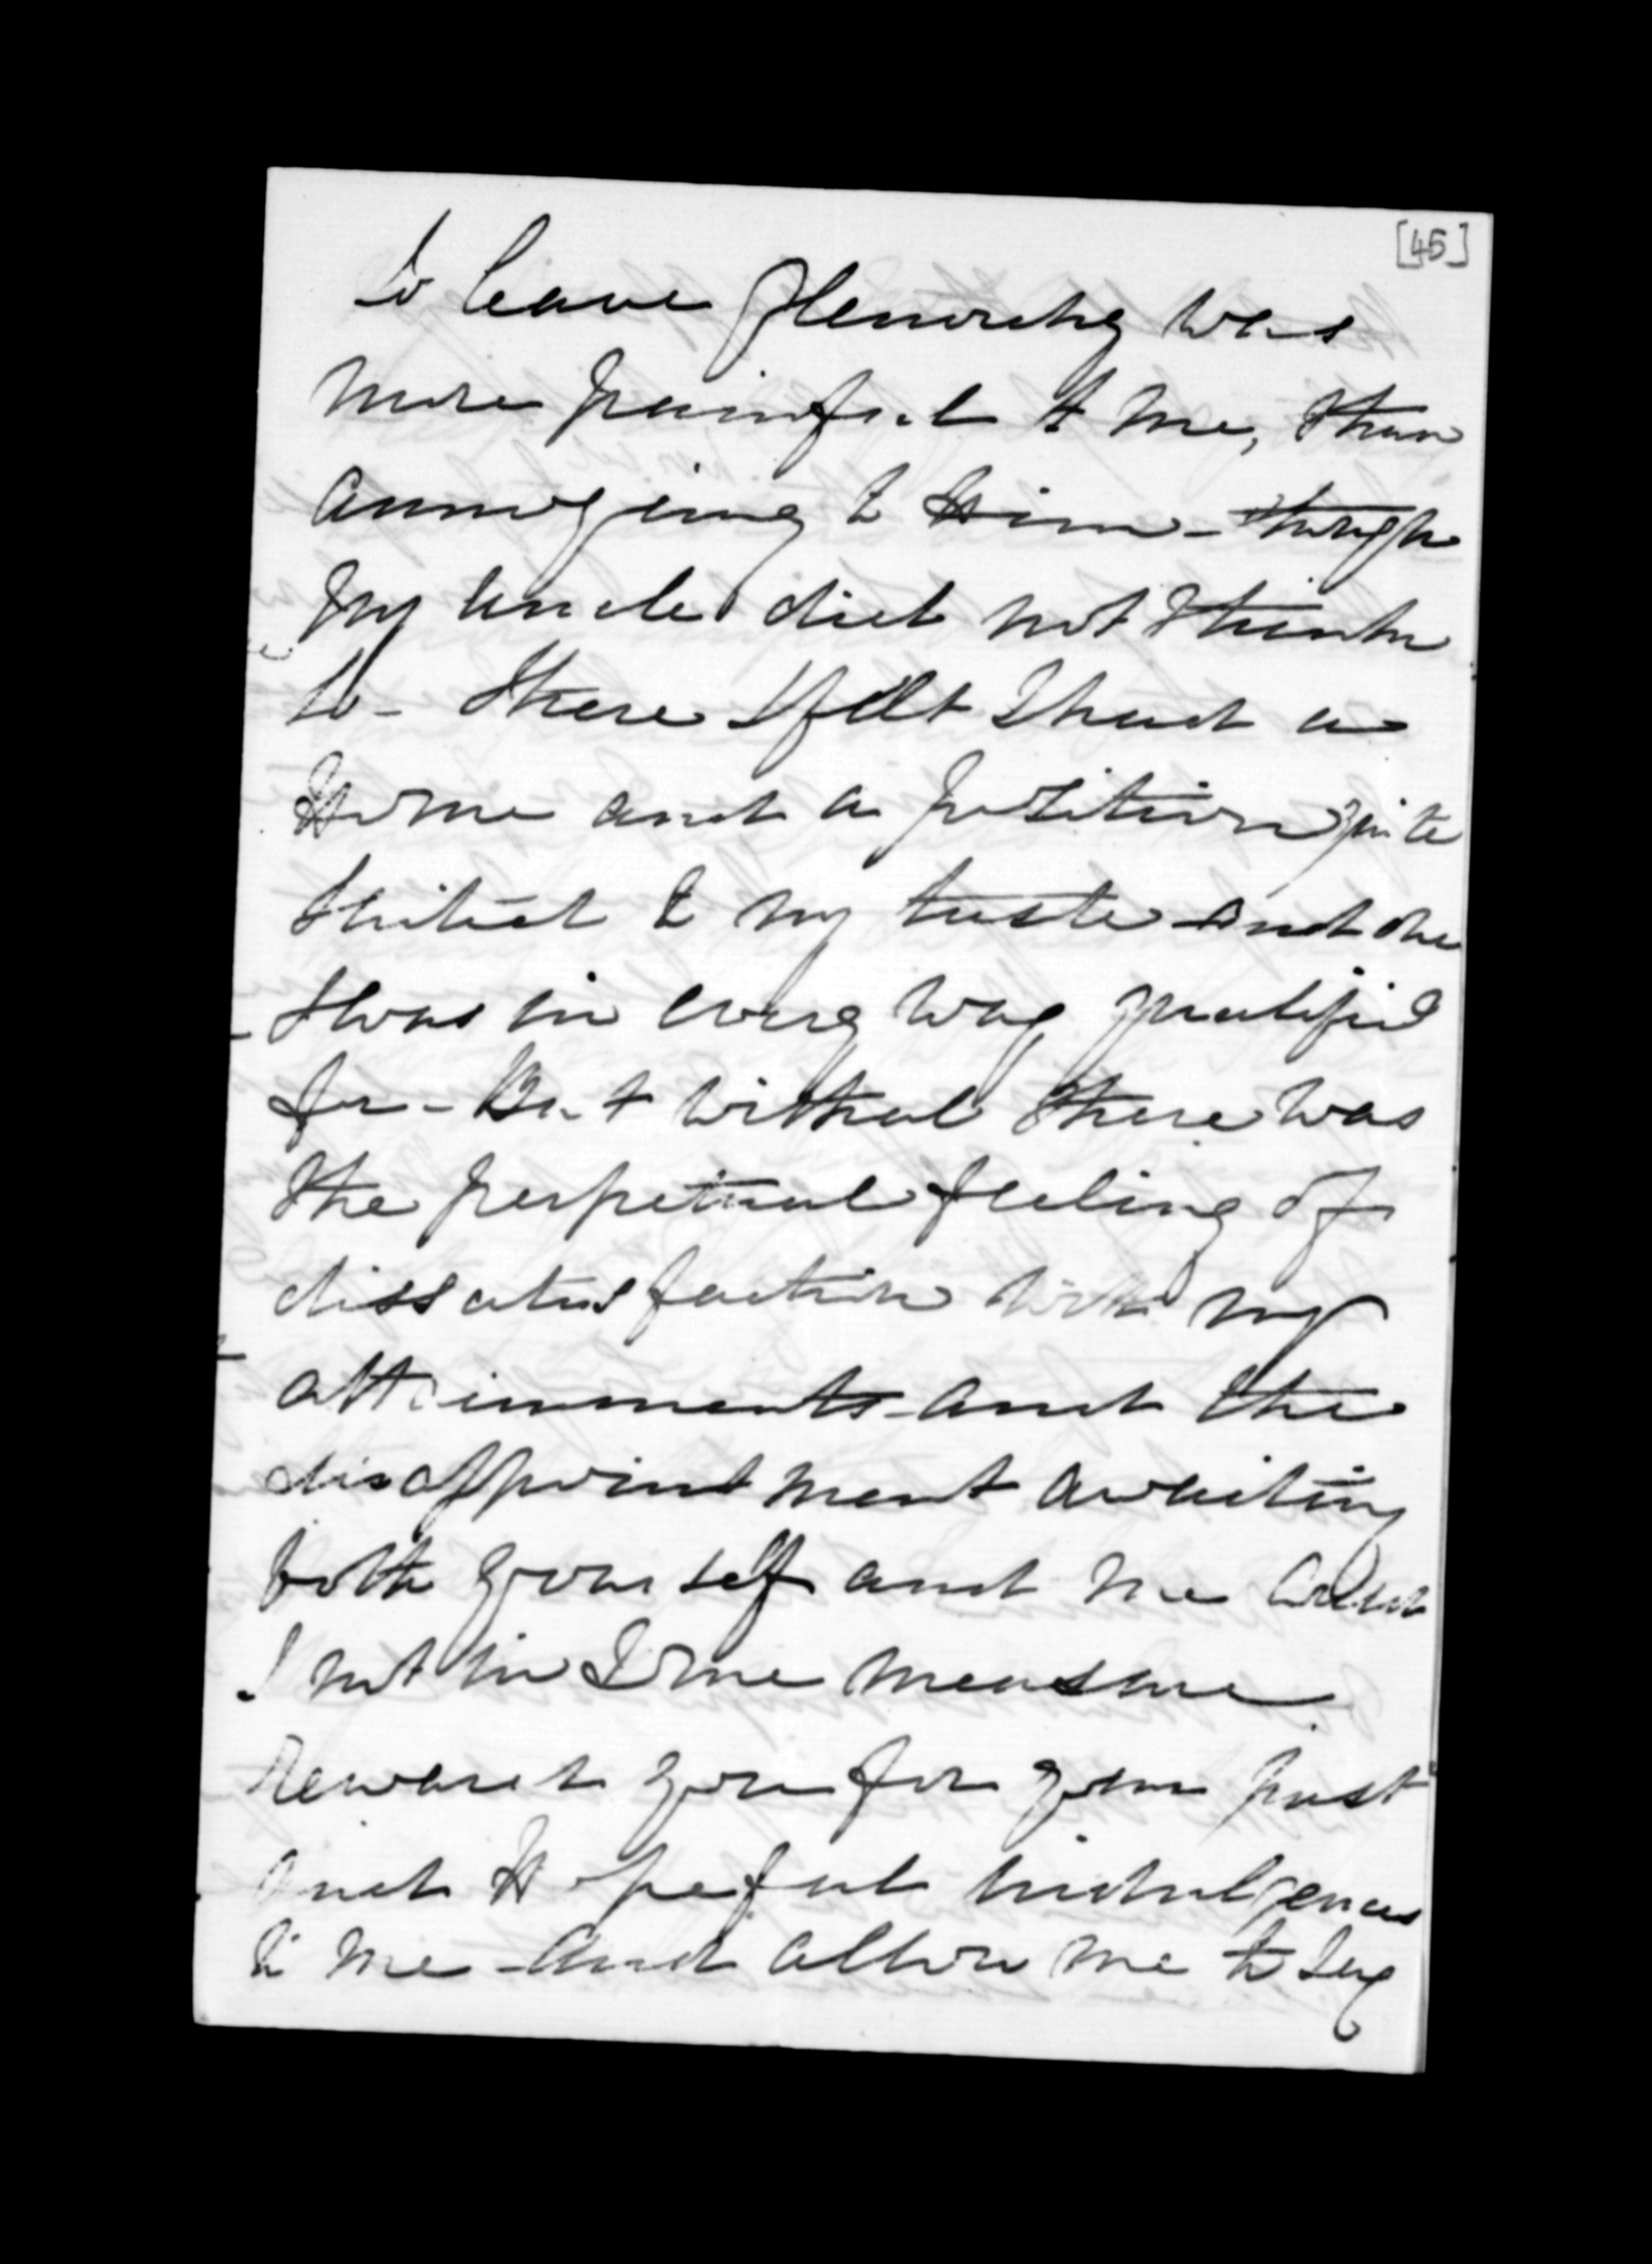 [45]
to leave Glenorchy was
more painful to me, than
annoying to Him - though
my Uncle did not think
so - There I felt I had a
Home and a position quite
suited to my taste and one
I was in every way qualified
for - But withal there was
the perpetual feeling of
dissatisfaction with my
attainments - and the
disappointment awaiting
both yourself and me could
I not in some measure
reward you for your past
and Hopeful indulgences
to me - And allow me to say